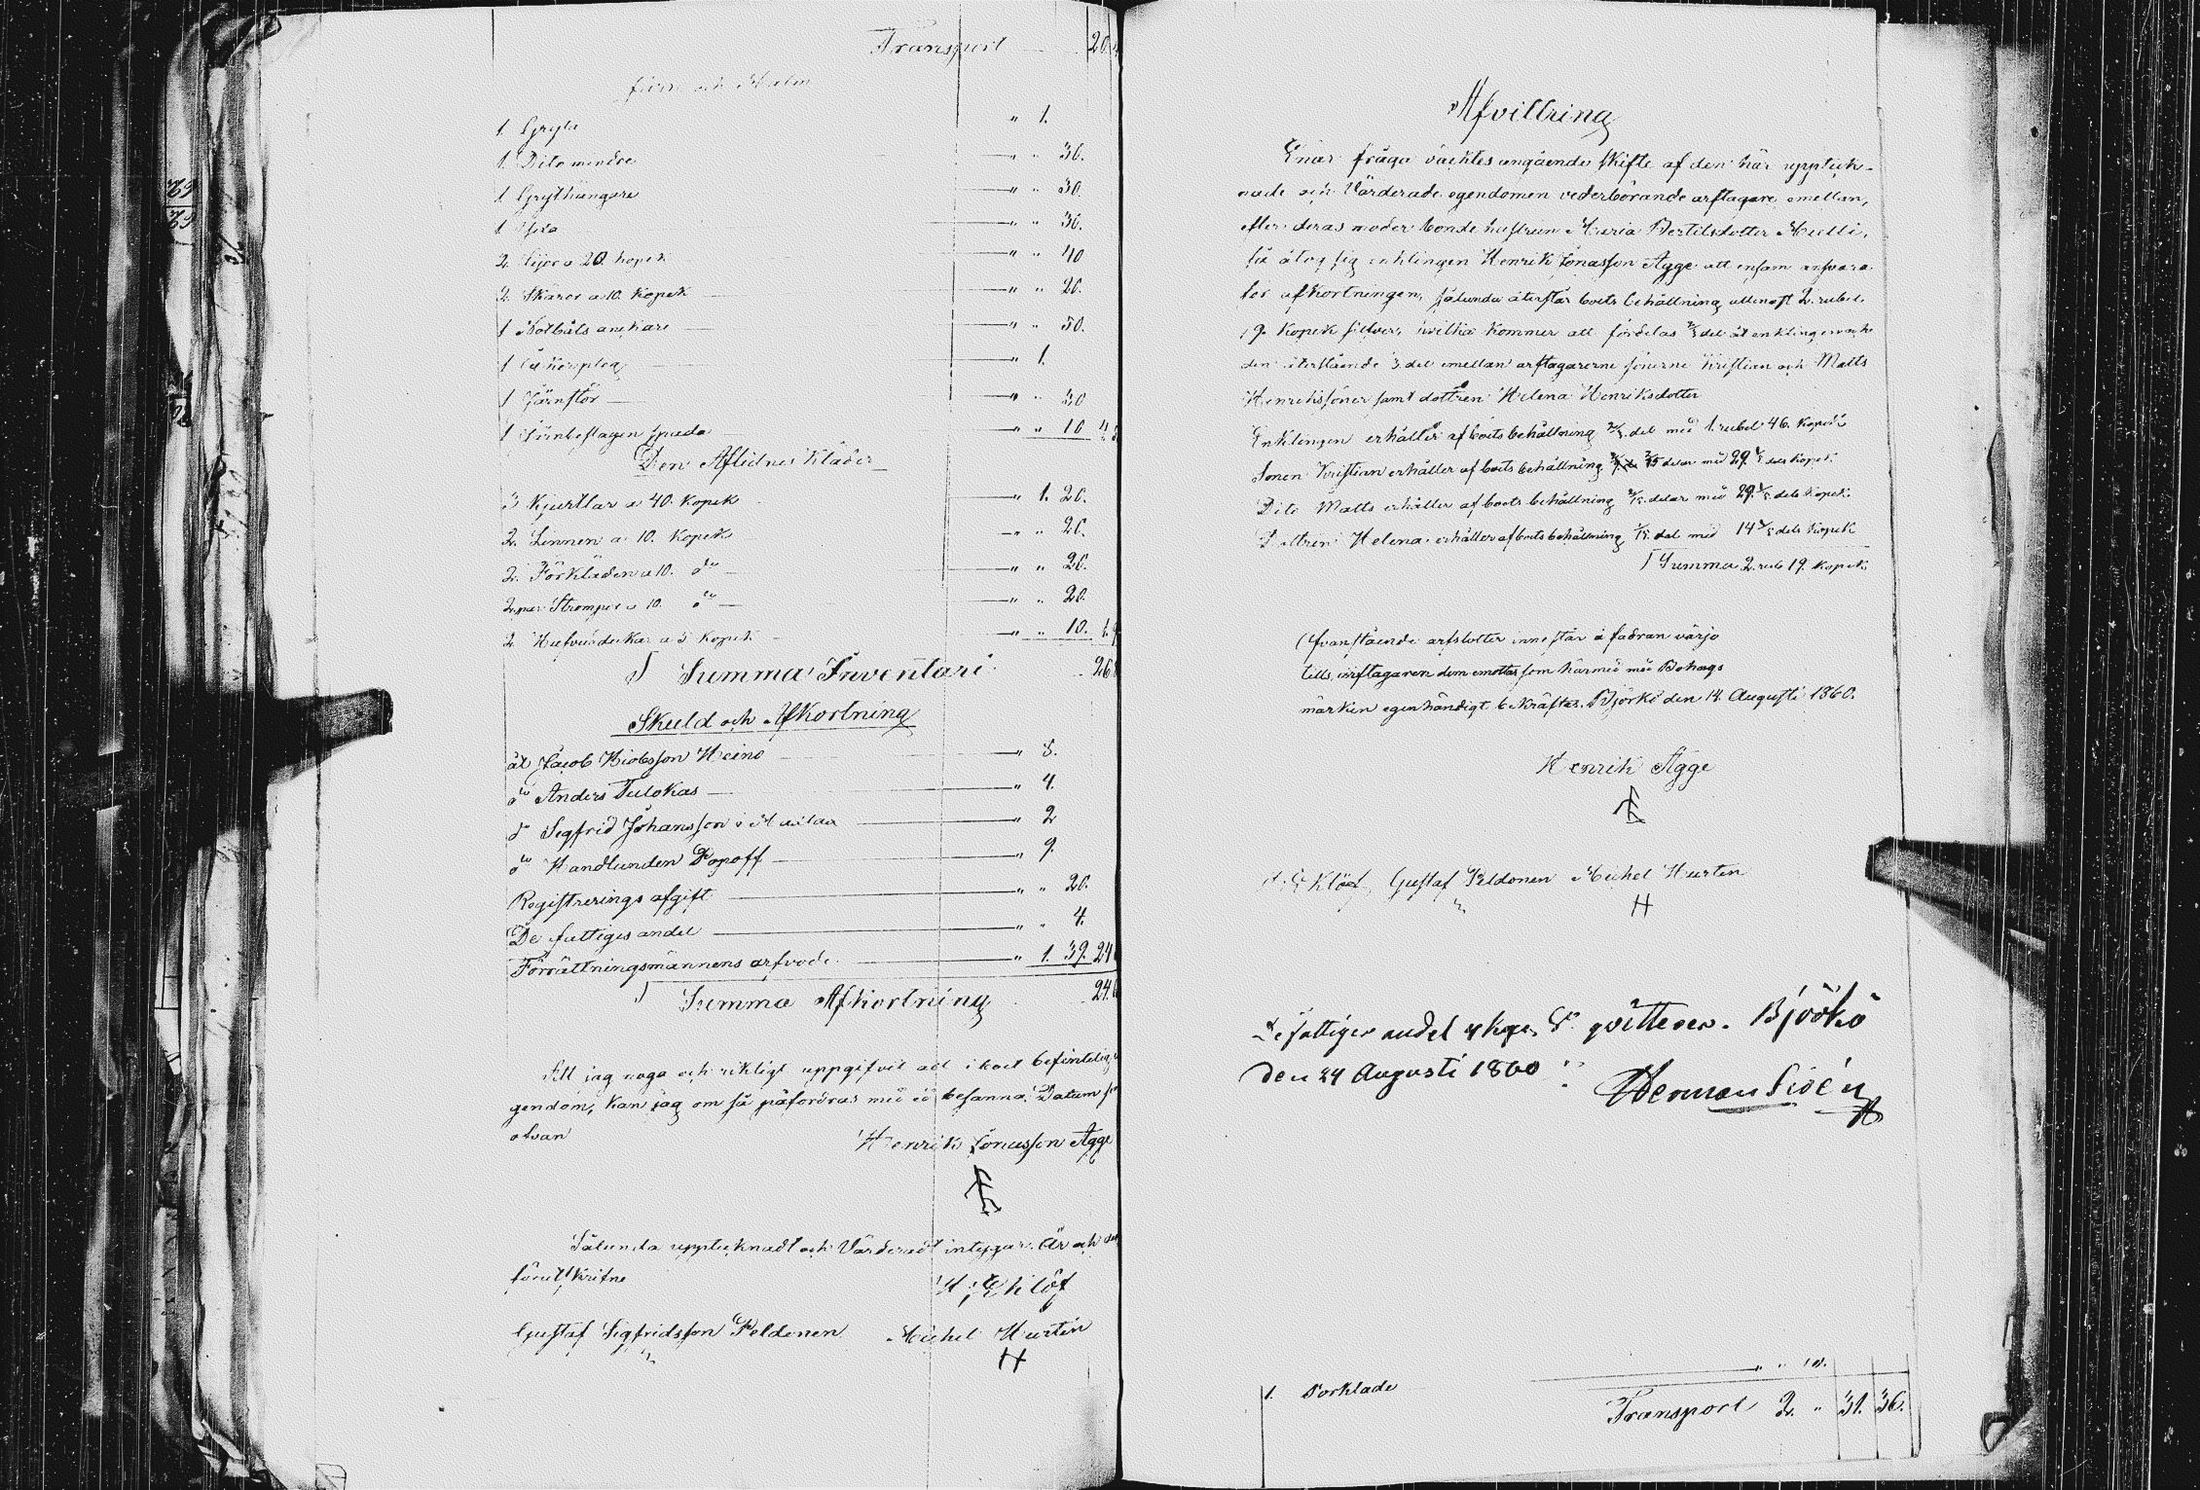 Transport 20.
järn och Malm
1. Gryta " 1.
1. Dito mindre " " 30.
1 Grythängare " " 30.
1 Yxa " " 30.
2. Lijor a 20. kopek " " 40
2. Skäror a 10. Kopek " " 20.
1 " " 50.
1 Åkerplog " 1.
1 Järnstör " " 30
1 Järnbeslagen spada " " 10
Den Aflidnes Kläder
3 Kjurtlar a 40. Kopek " 1. 20.
2. Linnen a 10. Kopek " " 20.
2. Förkläden a 10. do " " 20.
2. par Strumpor a 10. do " " 20.
2. Hufvuddukar a 5 Kopek " " 10.
S Summa Inventari 26
Skuld och Afkortning
åt Jacob Heino " 8.
do Anders Tulokas " 4.
do Sigfrid Johansson i " 2
do Handlanden Popoff " 9.
Registrerings afgift " " 20.
De fattiges andel " " 4.
Förrättningsmännens arfvode " 1. 39. 24
S Summa Afkortning 24.
Att jag noga och riktigt uppgifvit all i boet befintelig
gendom, kan jag om så påfordras med ed besanna. Datum
ofvan
Henrik Jonasson Agge
Sålunda upptecknadt och Värderadt intygar. År och
förutskrifne
H: Eklöf
Gustaf Sigfridsson Peldonen Michel Hurtin
H
Afvittring
Enär fråga väcktes angående skifte af den här uppteck-
nade och Värderade egendomen vederbörande arftagare emellan,
efter deras moder bondehustrun Maria Bertilsdotter
så åtog sig enklingen Henrik Jonasson Agge att ensam ansvara
för afkortningen, sålunda återstår boets behållning allenast 2. rubel
19. Kopek silfver, hvilka kommer att fördelas 2/3 del åt enklingen och
den återstående 1/3 del emellan arftagarerne sönerne Kristian och Matts
Henrikssöner samt dottren Helena Henriksdotter
Enklingen erhåller af boets behållning 2/3 del med 1. rubel 46. Kopek
Sonen Kristian erhåller af boets behållning 2/15 delar med 29. 1/5 dels Kopek
Dito Matts erhåller af boets behållning 2/15 delar med 29. 1/5 dels Kopek
Dottren Helena erhåller af boets behållning 1/15 del med 14 3/5 dels Kopek
S Summa 2. rub 19. Kopek
Ofvanstående arfslotter innestår i fadran värjo
tills arftagaren dem emottar som härmed med Bohags
märken egenhändigt bekräftas. Björkö den 14. Augusti 1860.
Henrik Agge
H: Eklöf Gustaf Peldonen Michel Hurten
H
De fattiges andel 4 Kop. Sr qvitteres. Björkö
den 24 Augusti 1860
Herman
" " 10.
1. Förkläde
Transport 2. " 31. 36.